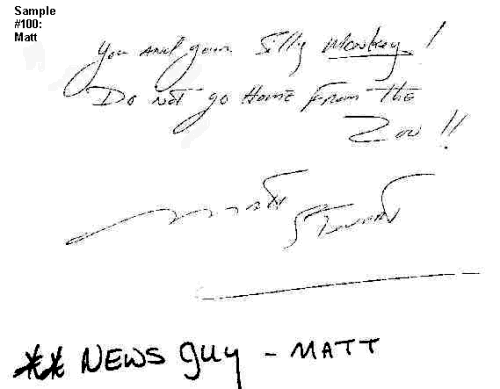 Sample
#100:
Matt
You and your Silly Monkey!
Do Not go Home From the
Zoo!!
Matt
** NEWS guy - MATT